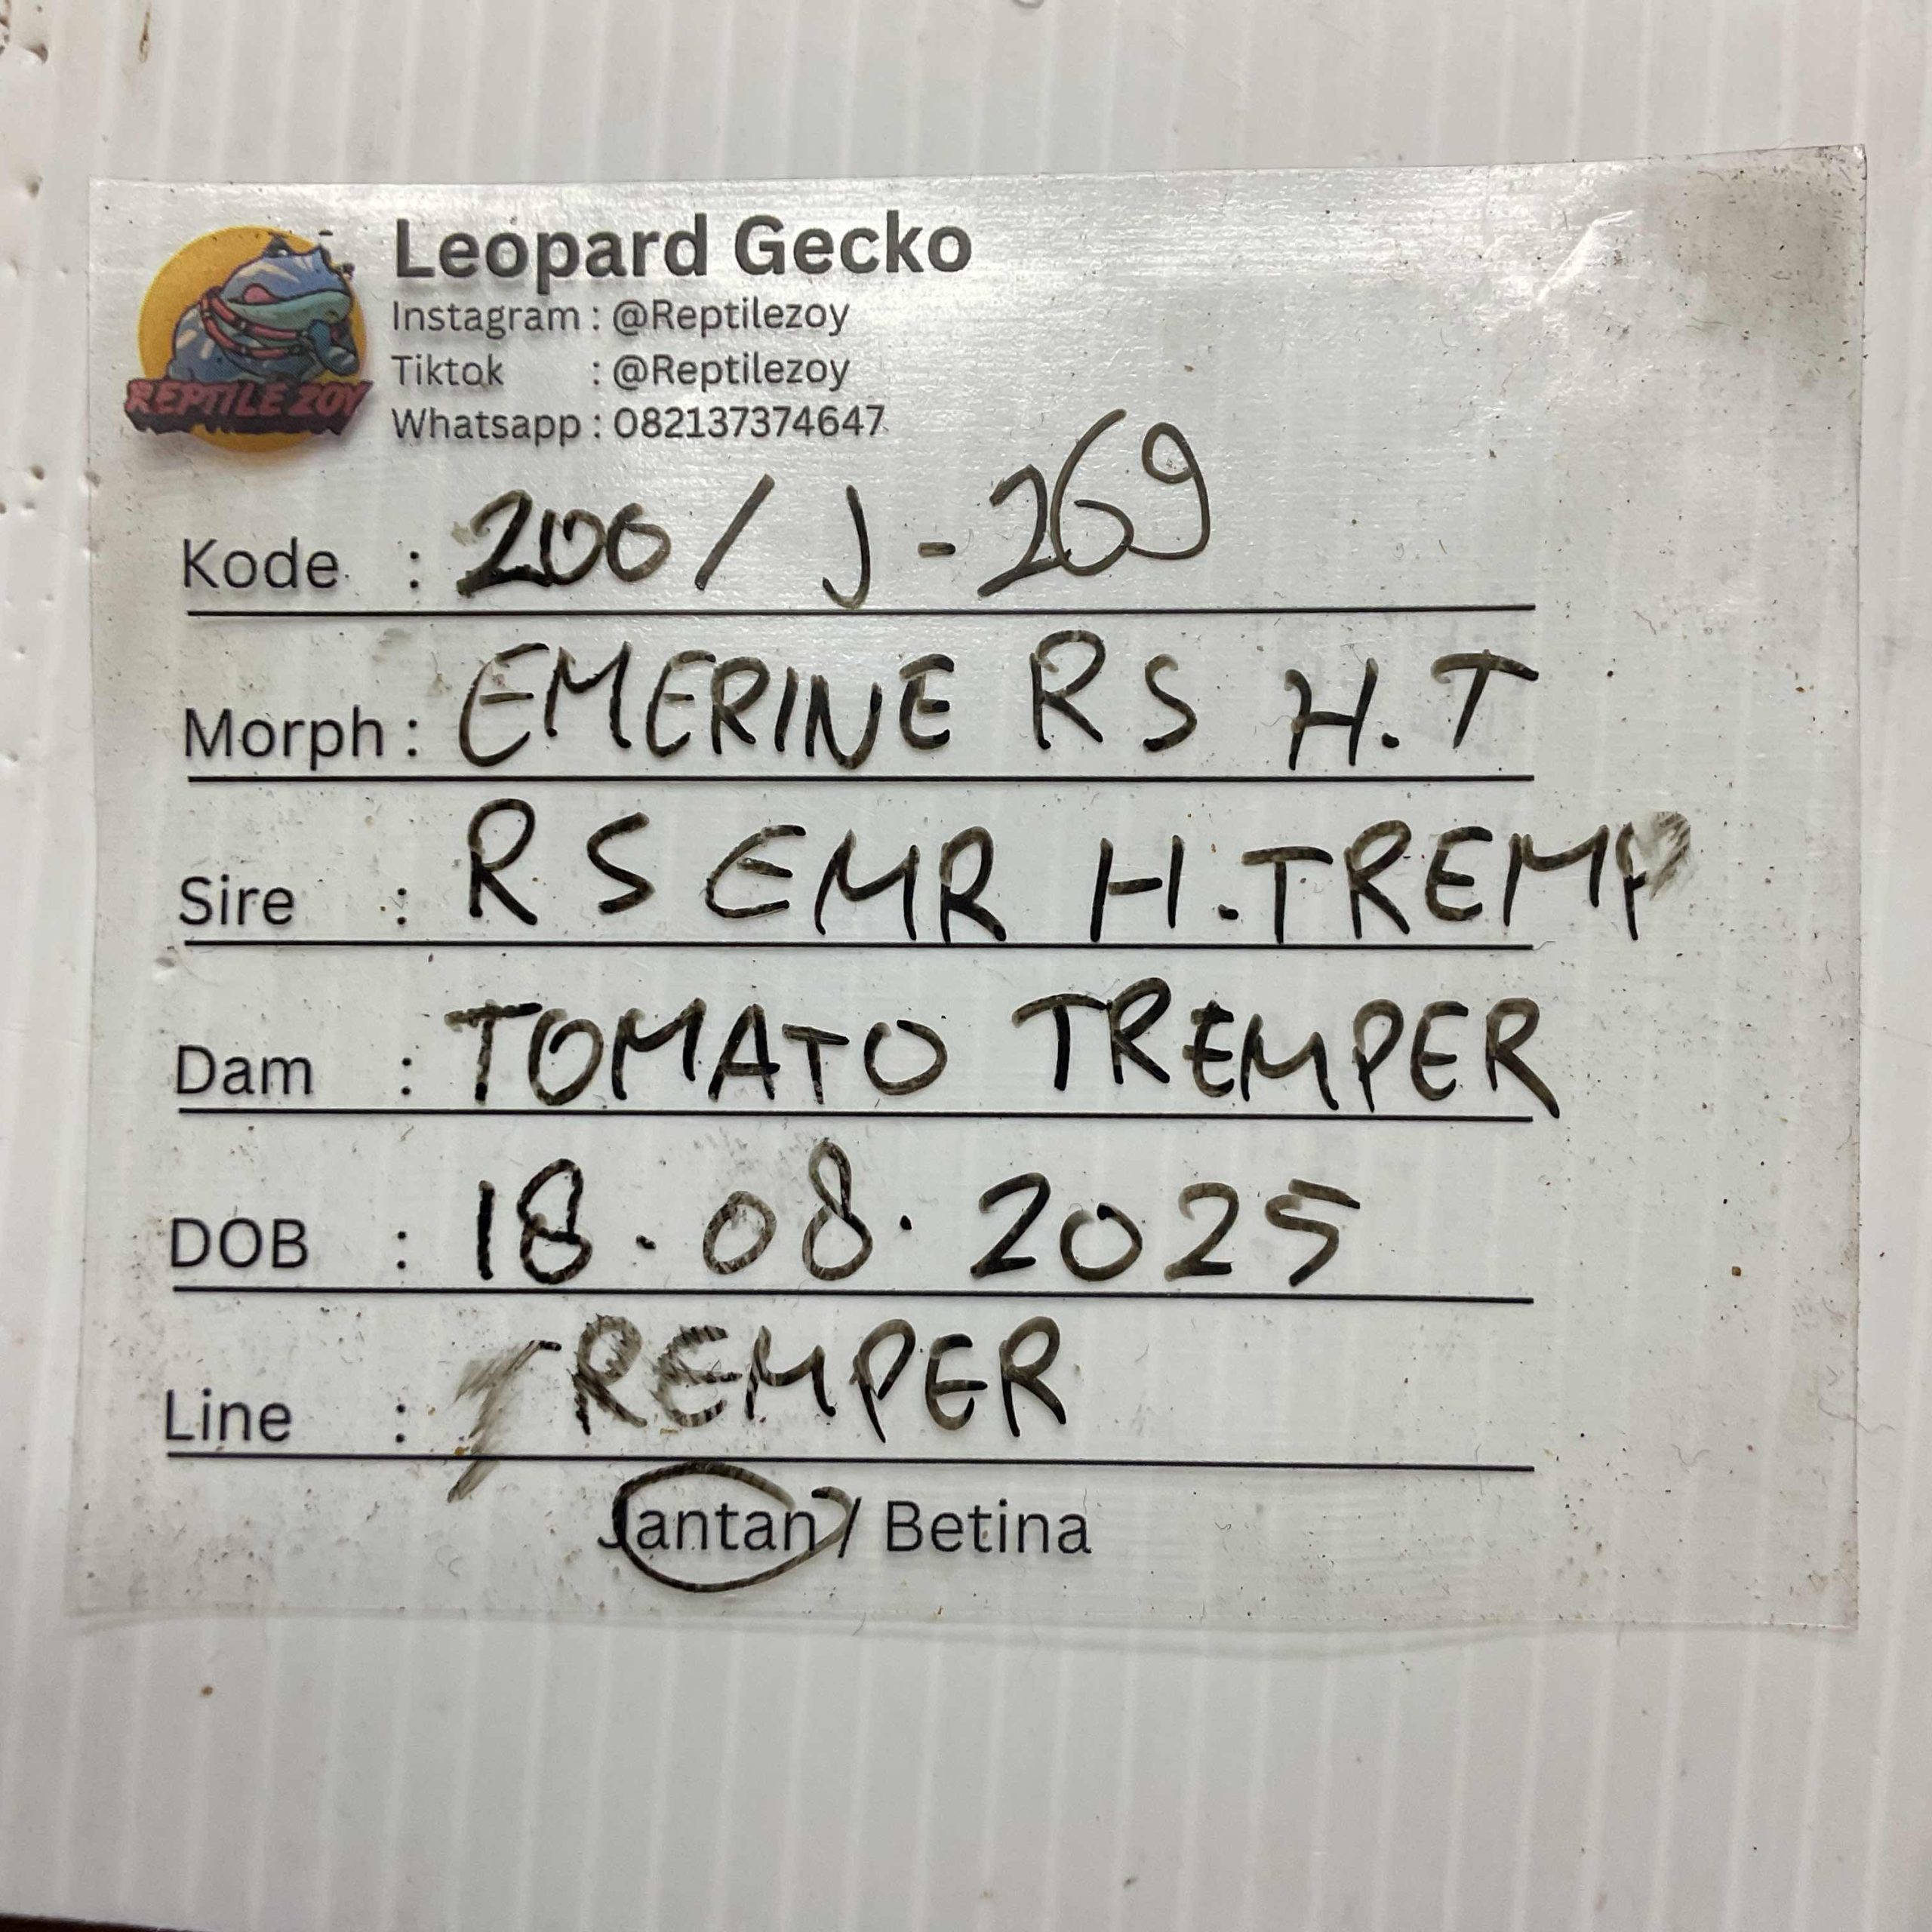 REPTILE ZOY
Leopard Gecko
Instagram : @Reptilezoy
Tiktok : @Reptilezoy
Whatsapp : 082137374647
Kode : 200 / J - 269
Morph : EMERINE RS H.T
Sire : RS EMR H.TREMP
Dam : TOMATO TREMPER
DOB : 18.08.2025
Line : TREMPER
Jantan / Betina